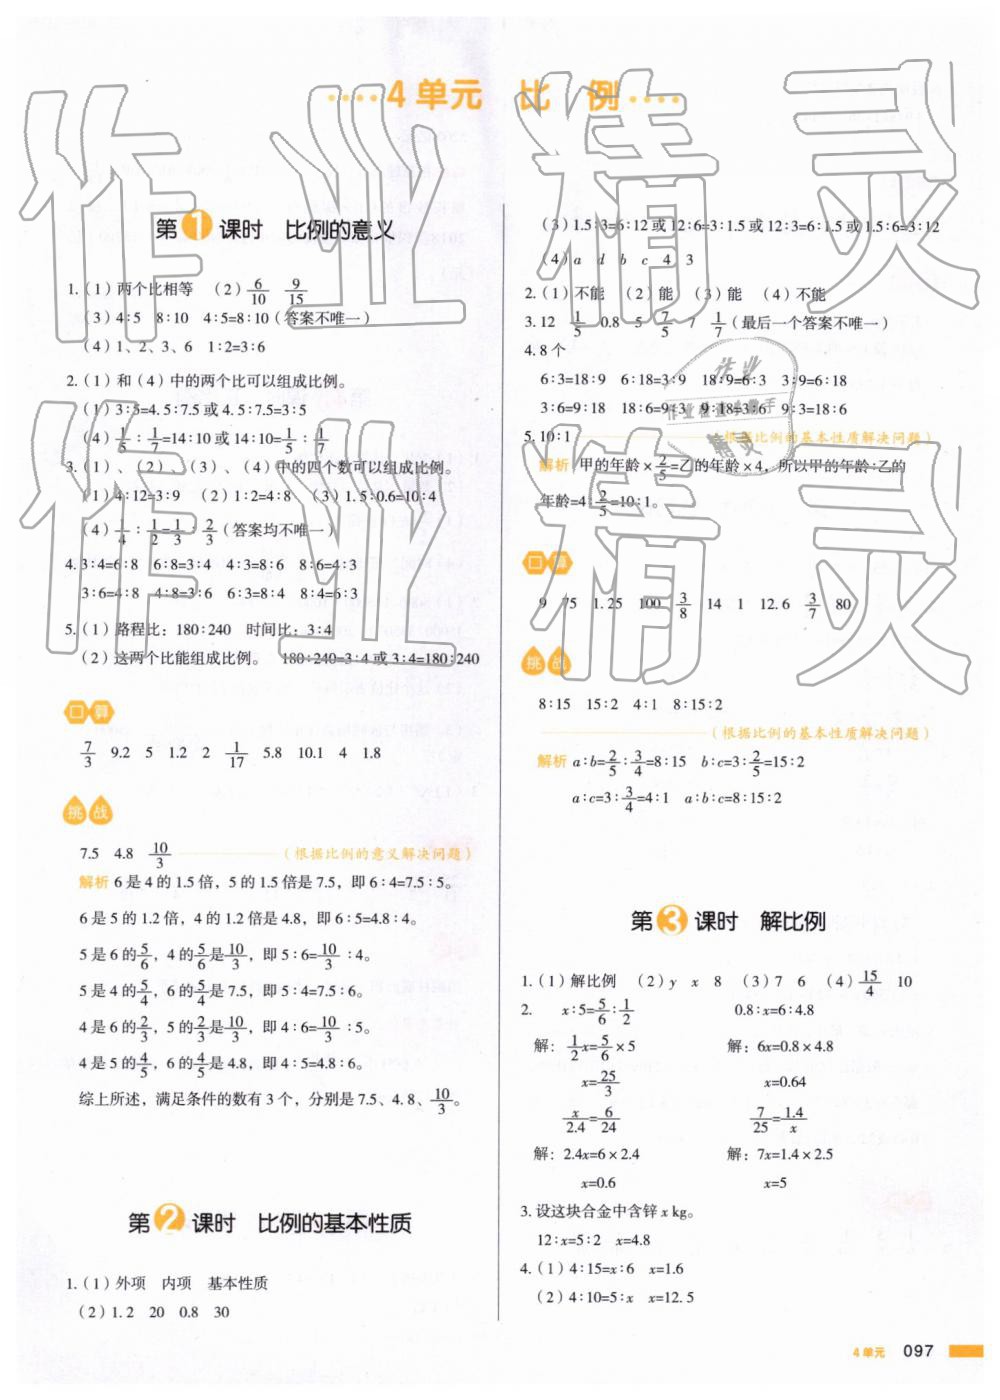 4单元 比例
第1课时 比例的意义
1.(1)两个比相等 (2)6/10 9/15
(3)4∶5 8∶10 4∶5=8∶10(答案不唯一)
(4)1、2、3、6 1∶2=3∶6
2.(1)和(4)中的两个比可以组成比例。
(1)3∶5=4.5∶7.5或4.5∶7.5=3∶5
(4)1/5∶1/7=14∶10或14∶10=1/5∶1/7
3.(1)、(2)、(3)、(4)中的四个数可以组成比例。
(1)4∶12=3∶9 (2)1∶2=4∶8 (3)1.5∶0.6=10∶4
(4)1/4∶1/2=1/3∶2/3(答案均不唯一)
4.3∶4=6∶8 6∶8=3∶4 4∶3=8∶6 8∶6=4∶3
3∶6=4∶8 4∶8=3∶6 6∶3=8∶4 8∶4=6∶3
5.(1)路程比：180∶240 时间比：3∶4
(2)这两个比能组成比例。 180∶240=3∶4或3∶4=180∶240
口算
7/3 9.2 5 1.2 2 1/17 5.8 10.1 4 1.8
挑战
7.5 4.8 10/3 (根据比例的意义解决问题)
解析 6是4的1.5倍，5的1.5倍是7.5，即6∶4=7.5∶5。
6是5的1.2倍，4的1.2倍是4.8，即6∶5=4.8∶4。
5是6的5/6，4的5/6是10/3，即5∶6=10/3∶4。
5是4的5/4，6的5/4是7.5，即5∶4=7.5∶6。
4是6的2/3，5的2/3是10/3，即4∶6=10/3∶5。
4是5的4/5，6的4/5是4.8，即4∶5=4.8∶6。
综上所述，满足条件的数有3个，分别是7.5、4.8、10/3。
第2课时 比例的基本性质
1.(1)外项 内项 基本性质
(2)1.2 20 0.8 30
(3)1.5∶3=6∶12或12∶6=3∶1.5或12∶3=6∶1.5或1.5∶6=3∶12
(4)a d b c 4 3
2.(1)不能 (2)能 (3)能 (4)不能
3.12 1/5 0.8 5 7/5 7 1/7(最后一个答案不唯一)
4.8个
6∶3=18∶9 6∶18=3∶9 18∶9=6∶3 3∶9=6∶18
3∶6=9∶18 18∶6=9∶3 9∶18=3∶6 9∶3=18∶6
5.10∶1 (根据比例的基本性质解决问题)
解析 甲的年龄×2/5=乙的年龄×4，所以甲的年龄∶乙的
年龄=4∶2/5=10∶1。
口算
9 75 1.25 100 3/8 14 1 12.6 3/7 80
挑战
8∶15 15∶2 4∶1 8∶15∶2
(根据比例的基本性质解决问题)
解析 a∶b=2/5∶3/4=8∶15 b∶c=3∶2/5=15∶2
a∶c=3∶3/4=4∶1 a∶b∶c=8∶15∶2
第3课时 解比例
1.(1)解比例 (2)y x 8 (3)7 6 (4)15/4 10
2. x∶5=5/6∶1/2 0.8∶x=6∶4.8
解：1/2x=5/6×5 解：6x=0.8×4.8
x=25/3 x=0.64
x/2.4=6/24 7/25=1.4/x
解：2.4x=6×2.4 解：7x=1.4×2.5
x=0.6 x=5
3.设这块合金中含锌x kg。
12∶x=5∶2 x=4.8
4.(1)4∶15=x∶6 x=1.6
(2)4∶10=5∶x x=12.5
4单元 097
作业精灵
作业精灵
作业
作业检查小助手
精灵